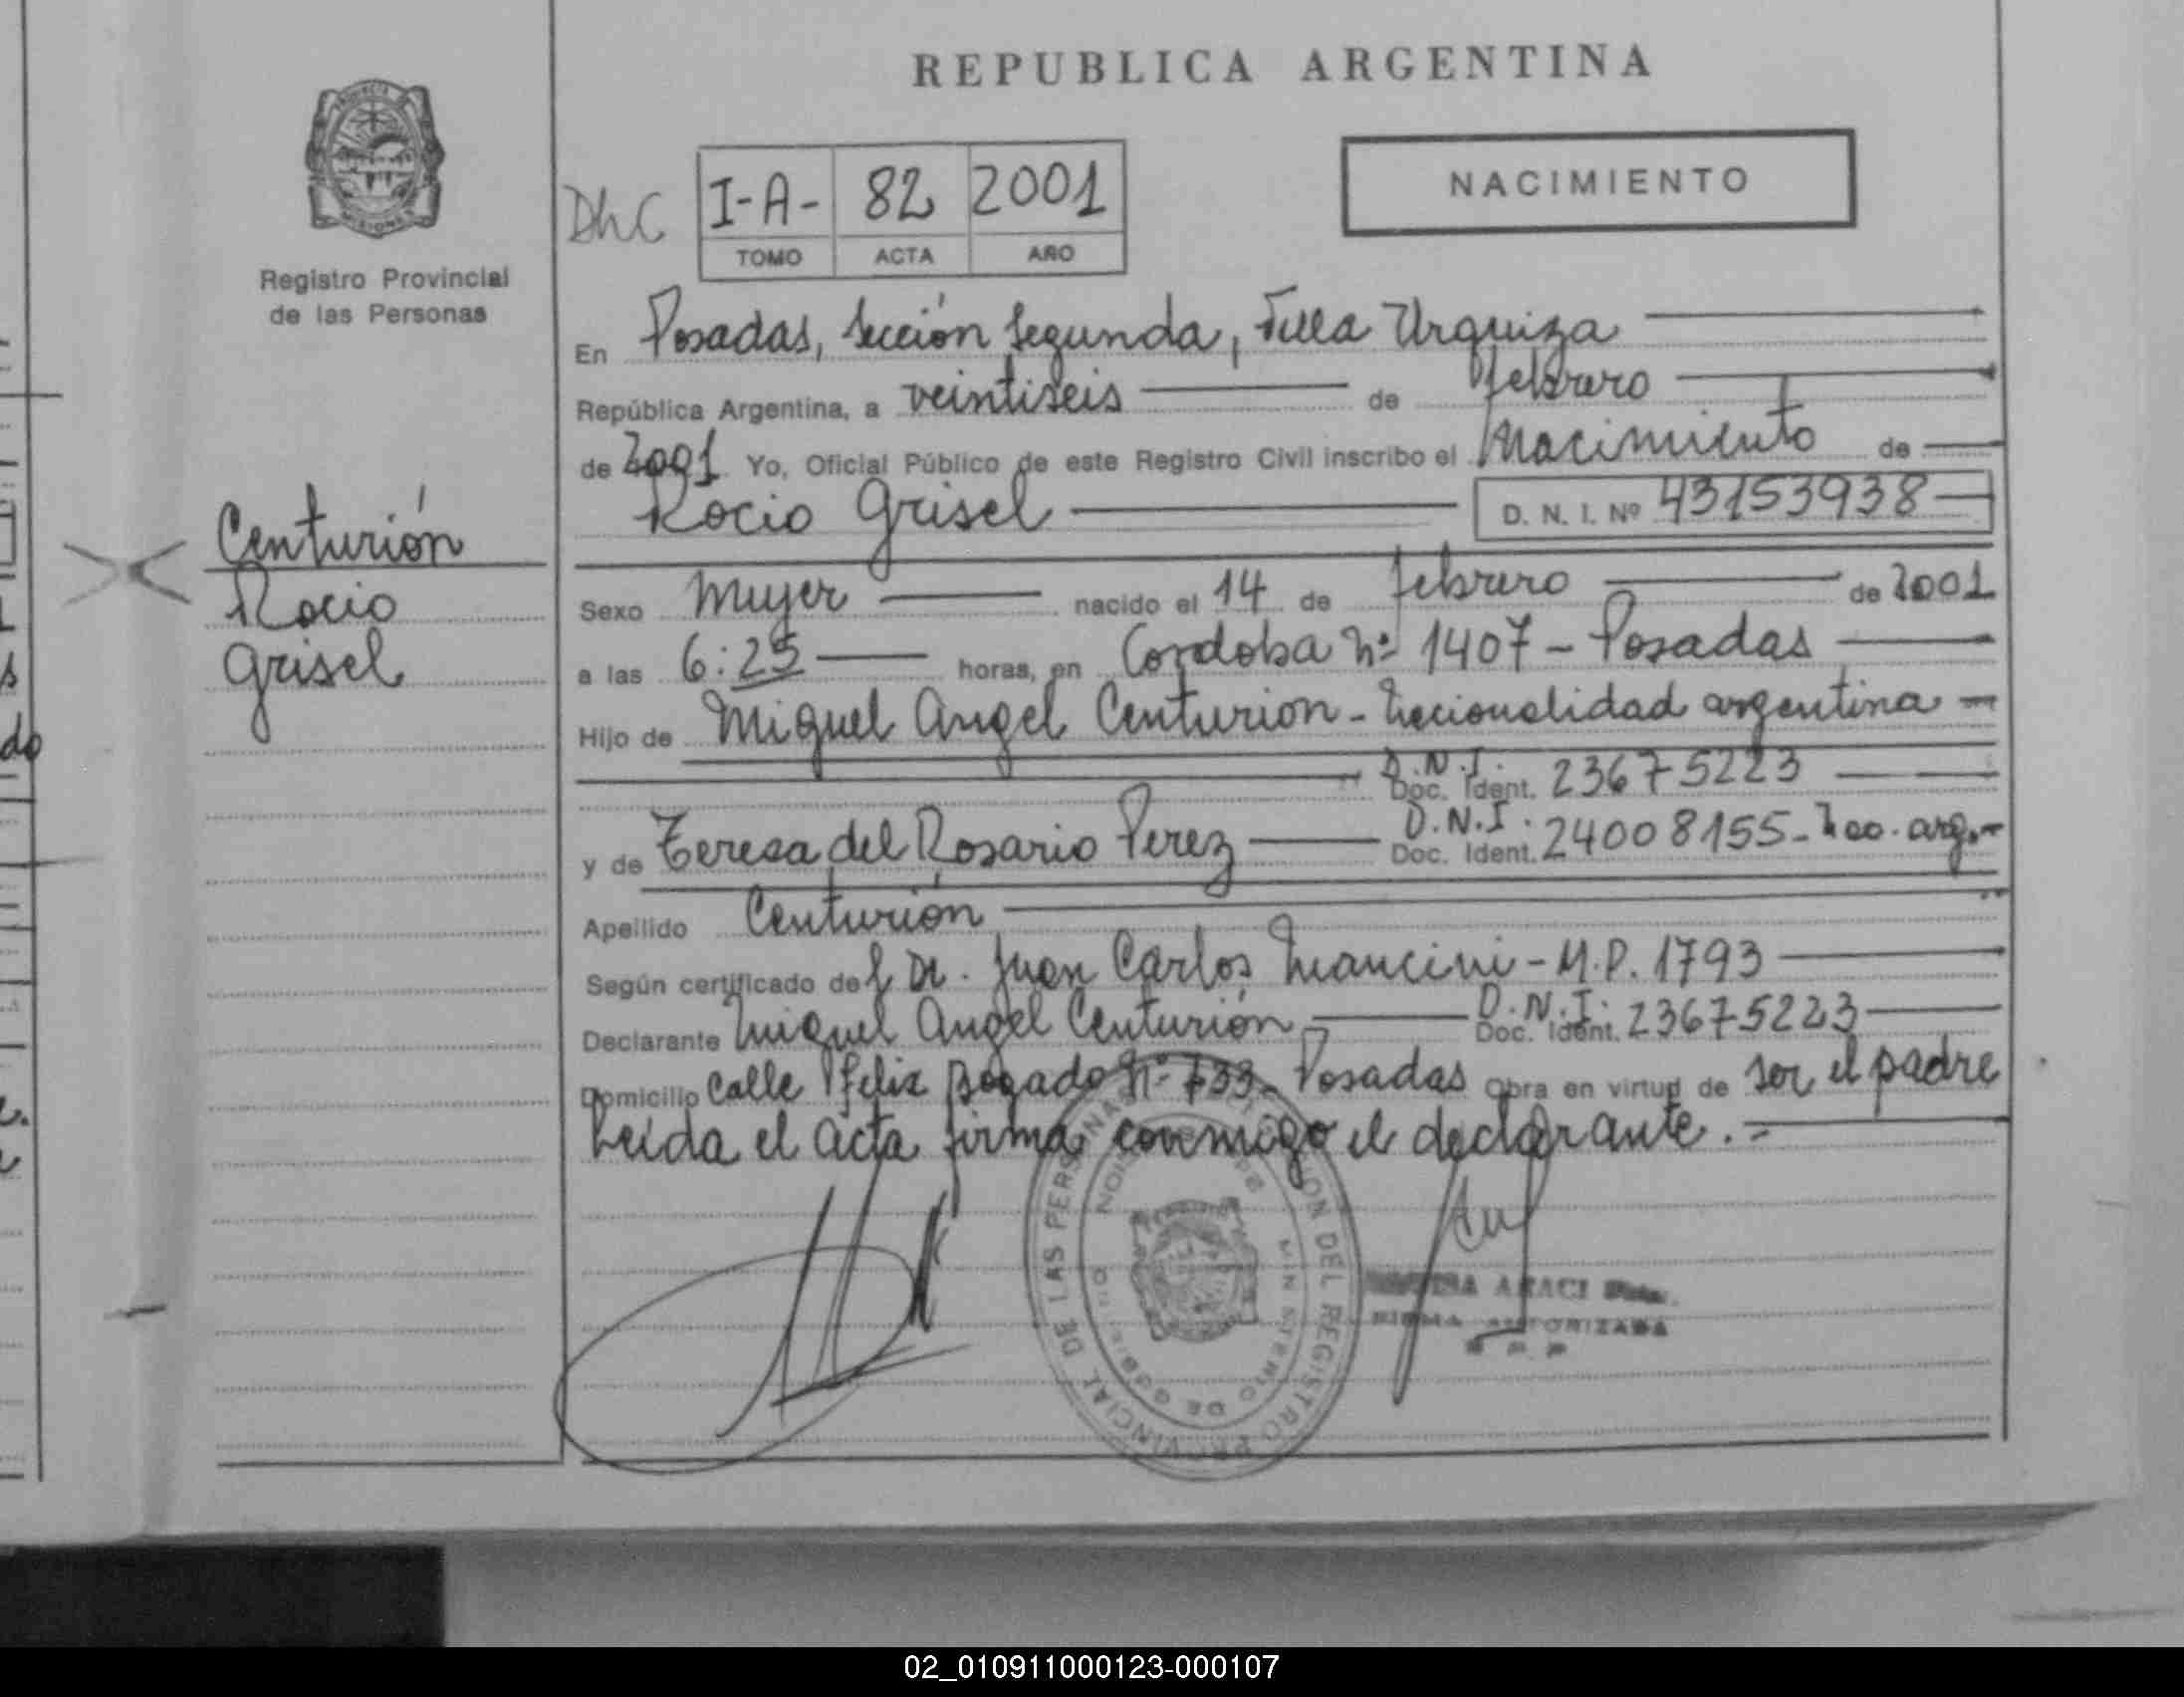 REPUBLICA ARGENTINA
NACIMIENTO
DhC
I-A- 82 2001
TOMO ACTA AÑO
Registro Provincial
de las Personas
Centurión
Rocio
Grisel
En Posadas, Sección Segunda, Villa Urquiza
República Argentina, a veintiseis de febrero
de 2001 Yo, Oficial Público de este Registro Civil inscribo el Nacimiento de
Rocio Grisel D. N. I. Nº 43153938
Sexo Mujer nacido el 14 de febrero de 2001
a las 6:25 horas, en Cordoba Nº 1407 - Posadas
Hijo de Miguel Angel Centurion - Nacionalidad argentina
D.N.I. Doc. Ident. 23675223
y de Teresa del Rosario Perez D.N.I. Doc. Ident. 24008155 - Nac. arg.-
Apellido Centurión
Según certificado del Dr. Juan Carlos Mancini - M.P. 1793
Declarante Miguel Angel Centurión D.N.I. Doc. Ident. 23675223
Domicilio Calle Felix Bogado Nº 733 - Posadas Obra en virtud de ser el padre
Leída el acta firma conmigo el declarante.-
DEL REGISTRO PROVINCIAL DE LAS PERSONAS
MINISTERIO DE GOBIERNO
FIRMA AUTORIZADA
02_010911000123-000107